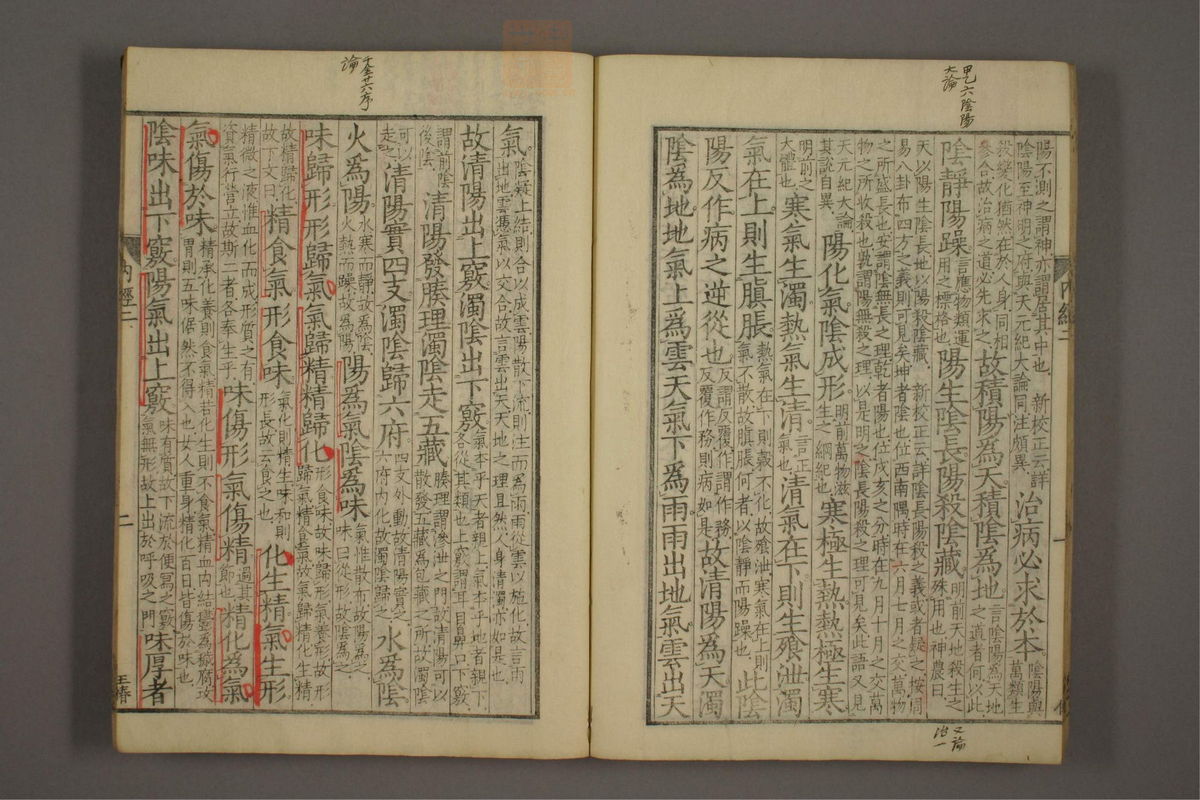 甲乙六陰陽
大論
陽不測之謂神亦謂居其中也　新校正云詳
陰陽至神明之府與天元紀大論同注頗異
治病必求於本
陰陽與
萬類生
殺變化猶然在於人身同相
參合故治病之道必先求之
故積陽為天積陰為地
言陰陽為天地
之道者何以此
陰靜陽躁
言應物類運
用之標格也
陽生陰長陽殺陰藏
明前天地殺生之
殊用也神農曰
天以陽生陰長地以陽殺陰藏　新校正云詳陰長陽殺之義或者疑之按周
易八卦布四方之義則可見矣坤者陰也位西南隅時在六月七月之交萬物
之所盛長也安謂陰無長之理乾者陽也位戌亥之分時在九月十月之交萬
物之所收殺也孰謂陽無殺之理以是明之陰長陽殺之理可見矣此語又見
天元紀大論
其說自異
陽化氣陰成形
明前萬物滋
生之綱紀也
寒極生熱熱極生寒
明前之
大體也
寒氣生濁熱氣生清
言正
氣也
清氣在下則生飱泄濁
氣在上則生䐜脹
熱氣在下則穀不化故飱泄寒氣在上則
氣不散故䐜脹何者以陰靜而陽躁也
此陰
陽反作病之逆從也
反謂反覆作謂作務
反覆作務則病如是
故清陽為天濁
陰為地地氣上為雲天氣下為雨雨出地氣雲出天
千金廿六序
論
氣
陰凝上結則合以成雲陽散下流則注而為雨雨從雲以施化故言雨
出地雲憑氣以交合故言雲出天天地之理且然人身清濁亦如是也
故清陽出上竅濁陰出下竅
氣本乎天者親上氣本乎地者親下
各從其類也上竅謂耳目鼻口下竅
謂前陰
後陰
清陽發腠理濁陰走五藏
腠理謂滲泄之門故清陽可以
散發五藏為包藏之所故濁陰
可以
走之
清陽實四支濁陰歸六府
四支外動故清陽實之
六府內化故濁陰歸之
水為陰
火為陽
水寒而靜故為陰
火熱而躁故為陽
陽為氣陰為味
氣惟散布故陽為之
味曰從形故陰為之
味歸形形歸氣氣歸精精歸化
形食味故味歸形氣養形故形
歸氣精食氣故氣歸精化生精
故精歸化
故下文曰
精食氣形食味
氣化則精生味和則
形長故云食之也
化生精氣生形
精微之液惟血化而成形質之有
資氣行營立故斯二者各奉生乎
味傷形氣傷精
過其
節也
精化為氣
氣傷於味
精承化養則食氣精若化生則不食氣精血內結鬱為穢腐攻
胃則五味倨然不得入也女人重身精化百日皆傷於味也
陰味出下竅陽氣出上竅
味有質故下流於便寫之竅
氣無形故上出於呼吸之門
味厚者
內經二
二